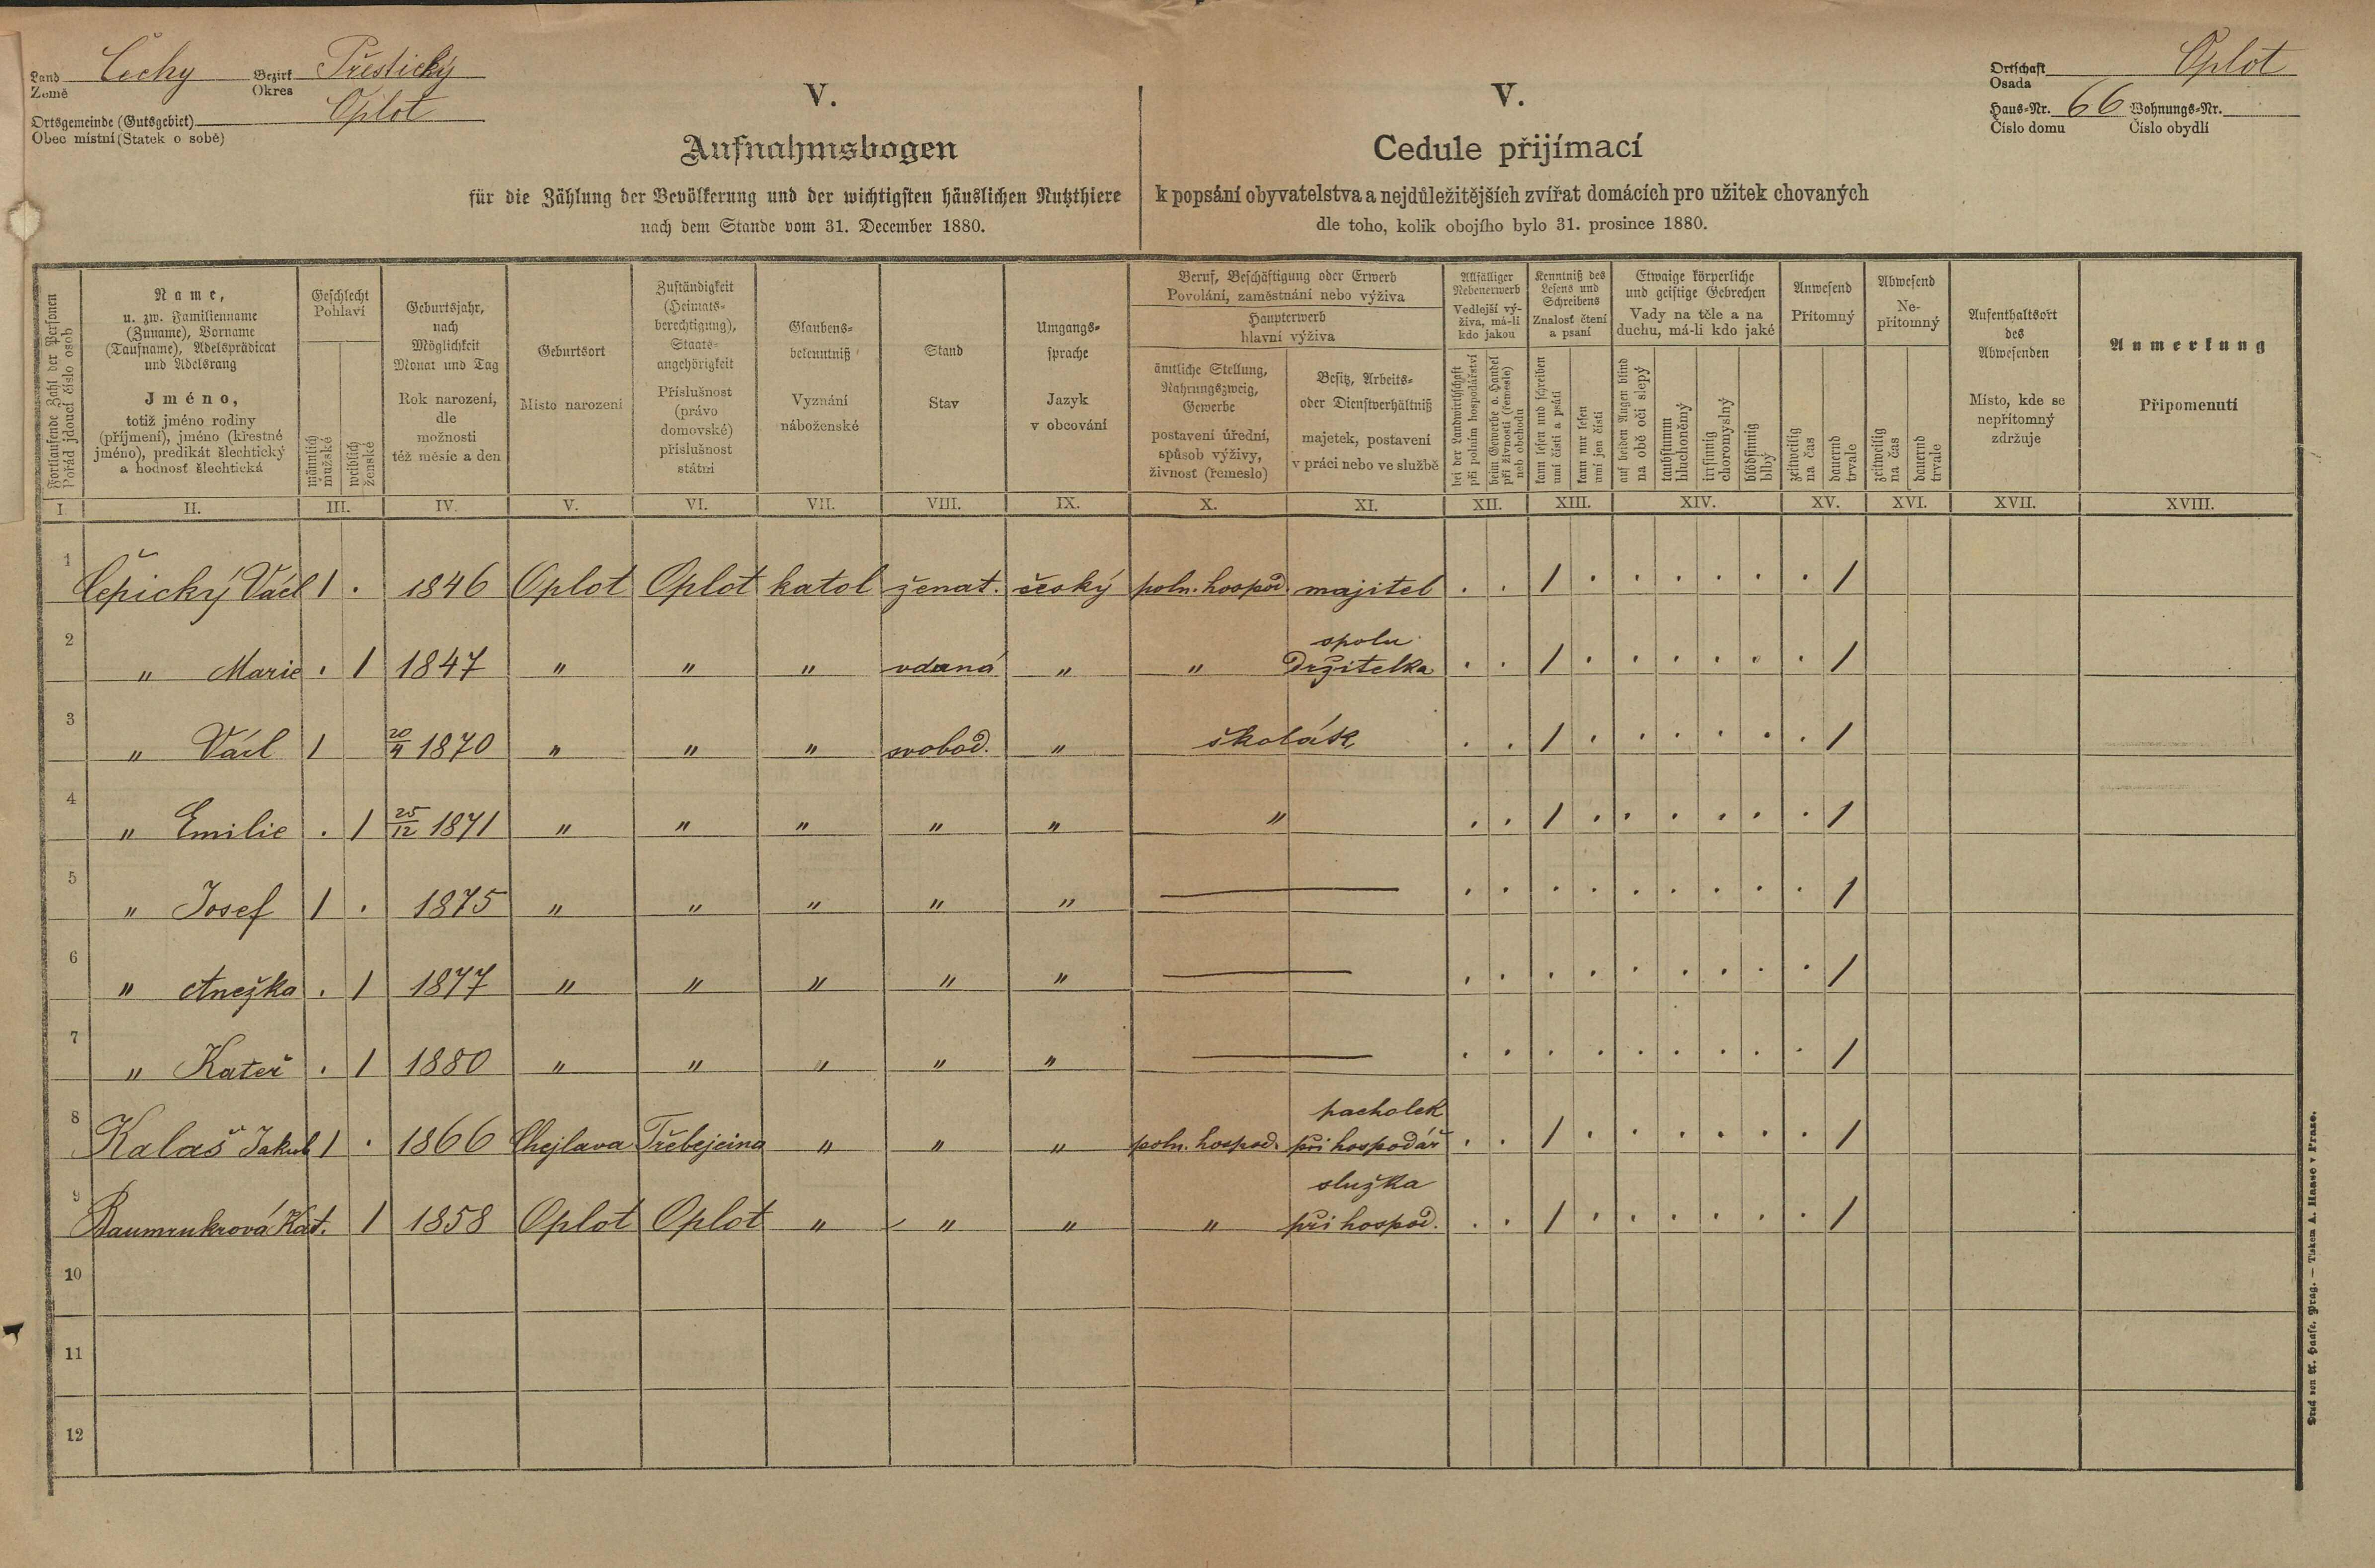 Land Čechy Bezirk Přestický
Země Okres
Ortsgemeinde (Gutsgebiet) Oplot
Obec místní (Statek o sobě)
V.
Aufnahmsbogen
für die Zählung der Bevölkerung und der wichtigsten häuslichen Nutzthiere
nach dem Stande vom 31. December 1880.
V.
Cedule přijímací
k popsání obyvatelstva a nejdůležitějších zvířat domácích pro užitek chovaných
dle toho, kolik obojího bylo 31. prosince 1880.
Ortschaft Oplot
Osada
Haus-Nr. 66 Wohnungs-Nr.
Číslo domu Číslo obydlí
Fortlaufende Zahl der Personen
Pořád jdoucí číslo osob
Name,
u. zw. Familienname
(Zuname), Vorname
(Taufname), Adelsprädicat
und Adelsrang
Jméno,
totiž jméno rodiny
(příjmení), jméno (křestné
jméno), predikát šlechtický
a hodnosť šlechtická
Geschlecht
Pohlaví
männlich
mužské
weiblich
ženské
Geburtsjahr,
nach
Möglichkeit
Monat und Tag
Rok narození,
dle
možnosti
též měsíc a den
Geburtsort
Místo narození
Zuständigkeit
(Heimats-
berechtigung),
Staats-
angehörigkeit
Příslušnost
(právo
domovské)
příslušnost
státní
Glaubens-
bekenntniß
Vyznání
náboženské
Stand
Stav
Umgangs-
sprache
Jazyk
v obcování
Beruf, Beschäftigung oder Erwerb
Povolání, zaměstnání nebo výživa
Haupterwerb
hlavní výživa
ämtliche Stellung,
Nahrungszweig,
Gewerbe
postavení úřední,
spůsob výživy,
živnosť (řemeslo)
Besitz, Arbeits-
oder Dienstverhältniß
majetek, postavení
v práci nebo ve službě
Allfälliger
Nebenerwerb
Vedlejší vý-
živa, má-li
kdo jakou
bei der Landwirthschaft
při polním hospodářství
beim Gewerbe o. Handel
při živnosti (řemesle)
neb obchodu
Kenntniß des
Lesens und
Schreibens
Znalosť čtení
a psaní
kann lesen und schreiben
umí čísti a psáti
kann nur lesen
umí jen čísti
Etwaige körperliche
und geistige Gebrechen
Vady na těle a na
duchu, má-li kdo jaké
auf beiden Augen blind
na obě oči slepý
taubstumm
hluchoněmý
irrsinnig
choromyslný
blödsinnig
blbý
Anwesend
Přítomný
zeitweilig
na čas
dauernd
trvale
Abwesend
Ne-
přítomný
zeitweilig
na čas
dauernd
trvale
Aufenthaltsort
des
Abwesenden
Místo, kde se
nepřítomný
zdržuje
Anmerkung
Připomenutí
I. II. III. IV. V. VI. VII. VIII. IX. X. XI. XII. XIII. XIV. XV. XVI. XVII. XVIII.
1 Čepický Václ 1 . 1846 Oplot Oplot katol ženat. český poln. hospod. majitel . . / . . . . . . /
2 " Marie . 1 1847 " " " vdaná " " spolu
držitelka . . / . . . . . . /
3 " Václ 1 20/4 1870 " " " svobod. " školák . . / . . . . . . /
4 " Emilie . 1 25/12 1871 " " " " " " . . / . . . . . . /
5 " Josef 1 . 1875 " " " " " — . . . . . . . . . /
6 " Anežka . 1 1877 " " " " " — . . . . . . . . . /
7 " Kateř . 1 1880 " " " " " — . . . . . . . . . /
8 Kalaš Jakub 1 . 1866 Chejlava Třebejcina " " " poln. hospod. pacholek
při hospodář . . / . . . . . . /
9 Baumrukrová Kat. 1 1858 Oplot Oplot " " " " služka
při hospod. . . / . . . . . . /
10
11
12
Druck von A. Haase, Prag. — Tiskem A. Haase v Praze.